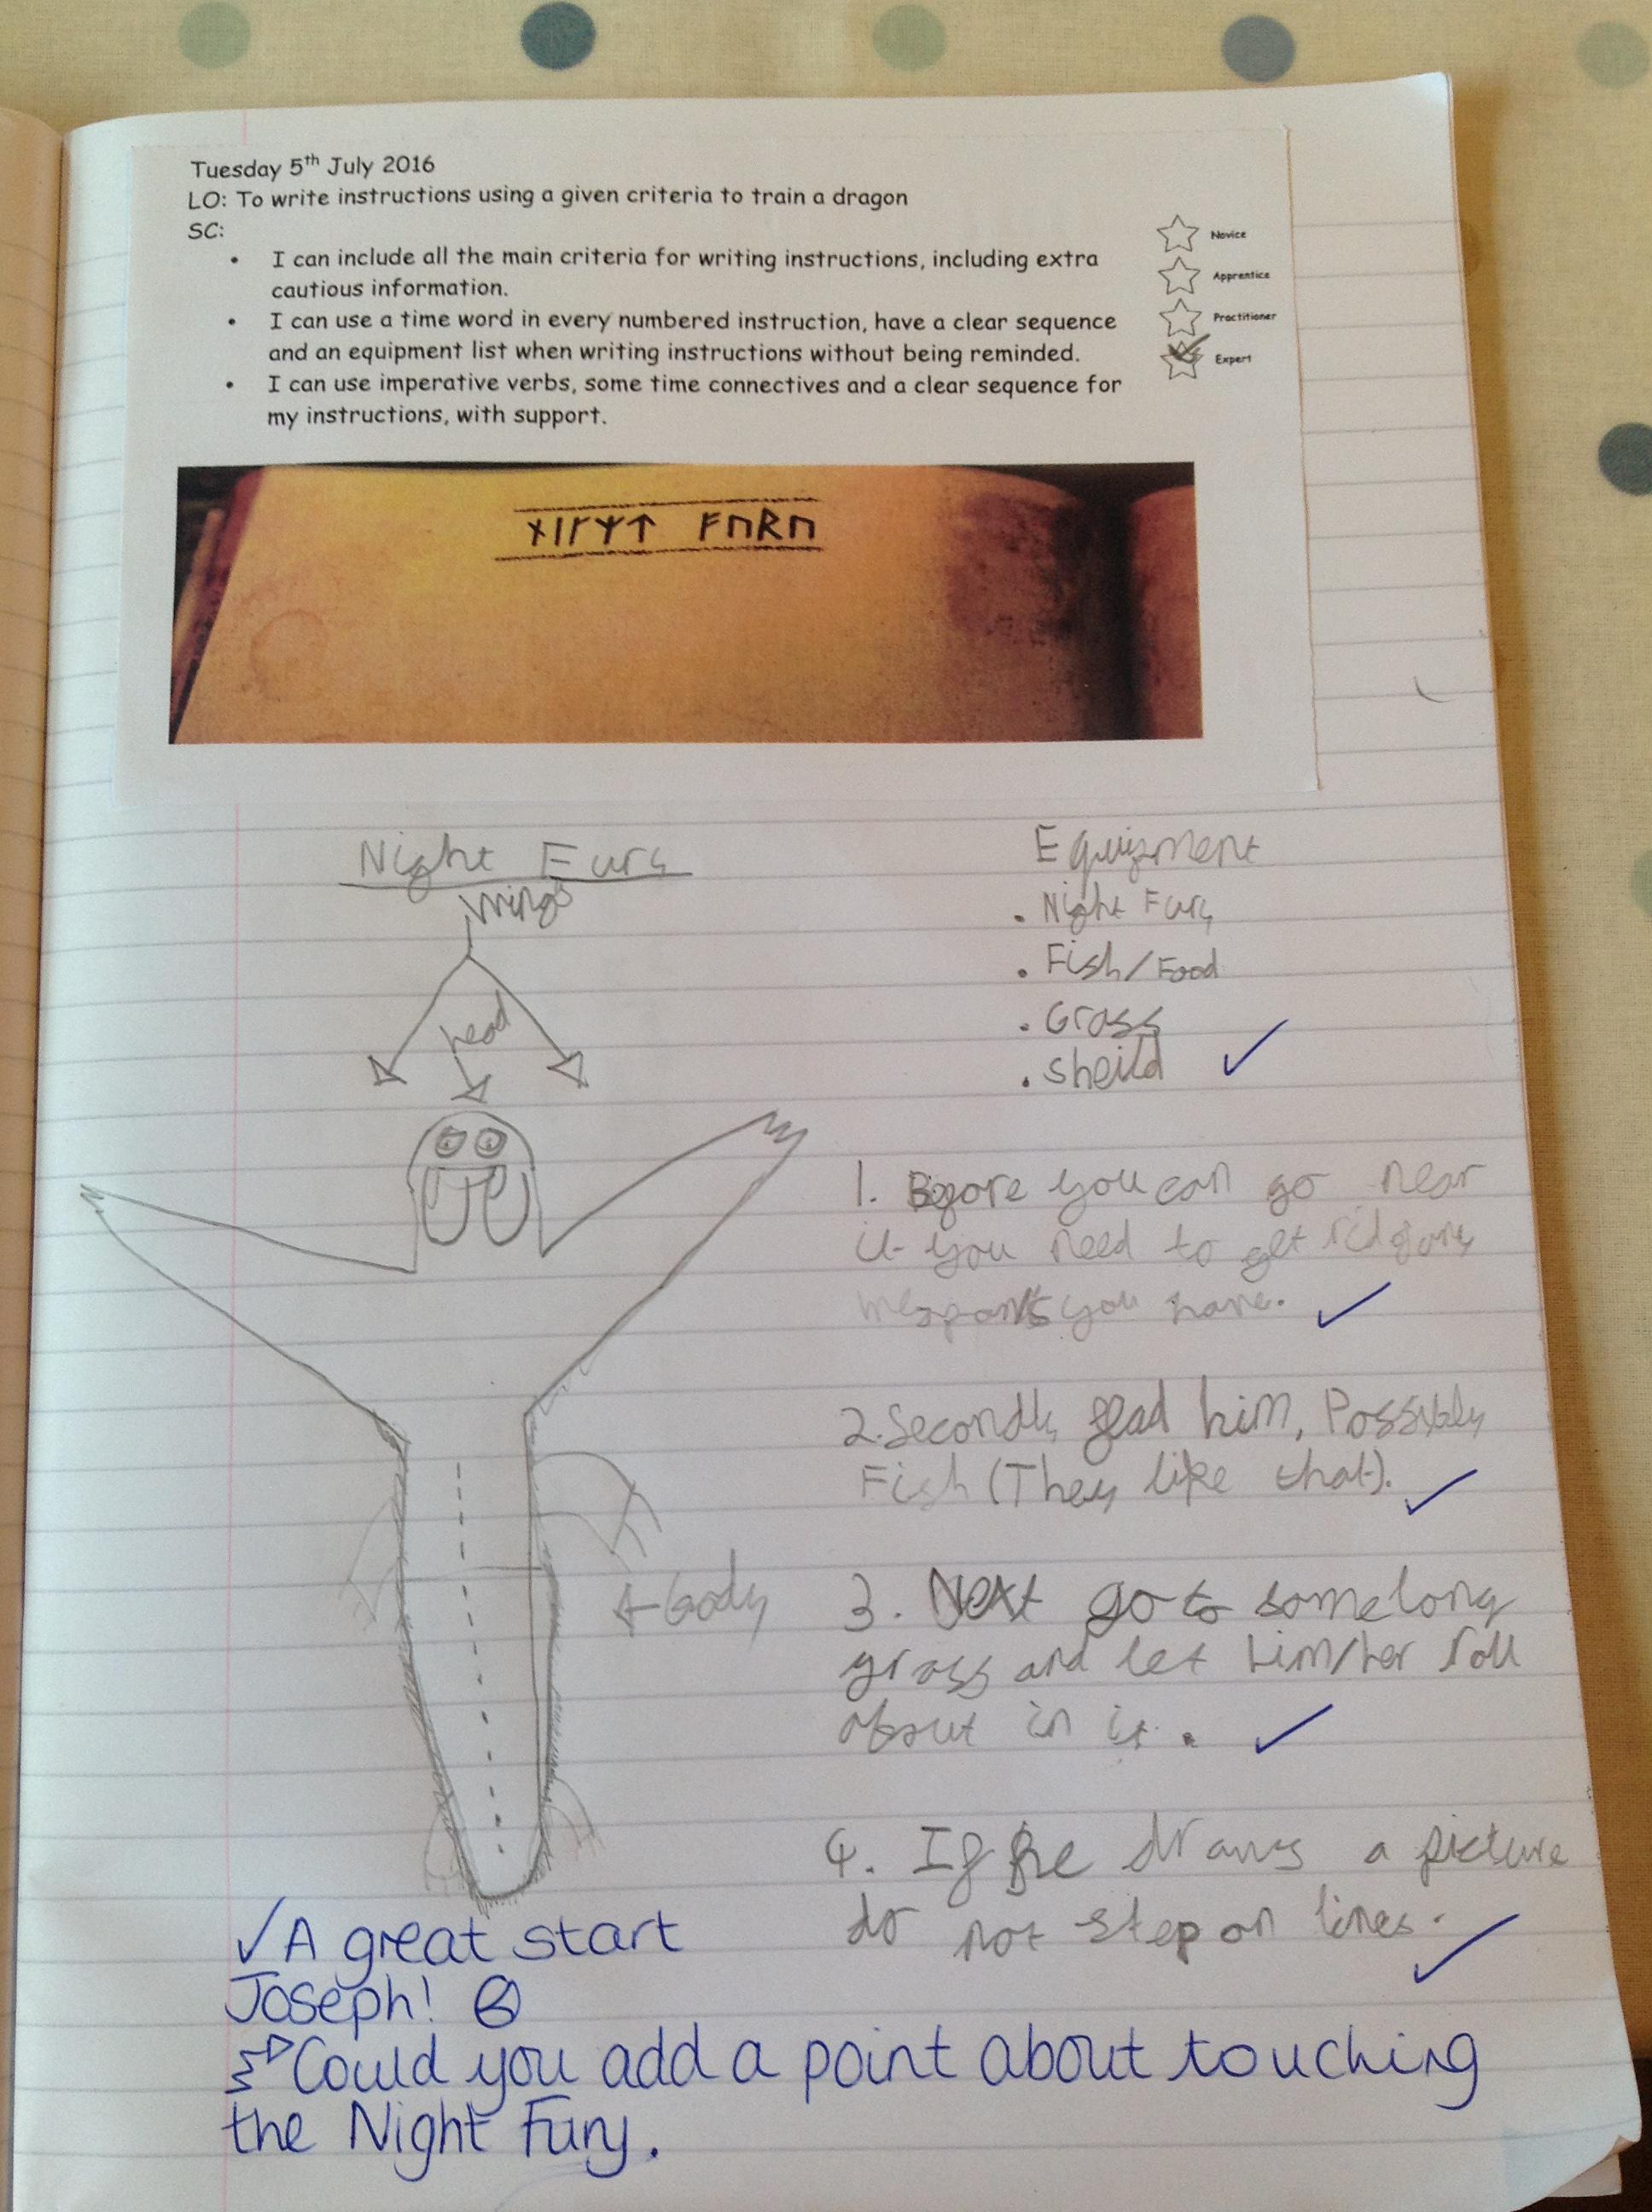 Tuesday 5th July 2016
LO: To write instructions using a given criteria to train a dragon
SC:
• I can include all the main criteria for writing instructions, including extra
cautious information.
• I can use a time word in every numbered instruction, have a clear sequence
and an equipment list when writing instructions without being reminded.
• I can use imperative verbs, some time connectives and a clear sequence for
my instructions, with support.
Novice
Apprentice
Practitioner
Expert
ᚾᛁᚴᛉᛏ ᚠᚢᚱᚢ
Night Fury
wings
head
body
Equipment
. Night Fury
. Fish/Food
. Grass
. sheild
1. Before you can go near
it you need to get rid of any
weapons you have.
2. Secondly fead him, Possibly
Fish (They like that).
3. Next go to some long
grass and let him/her roll
about in it.
4. If he draws a picture
do not step on lines.
✓ A great start
Joseph!
Could you add a point about touching
the Night Fury.